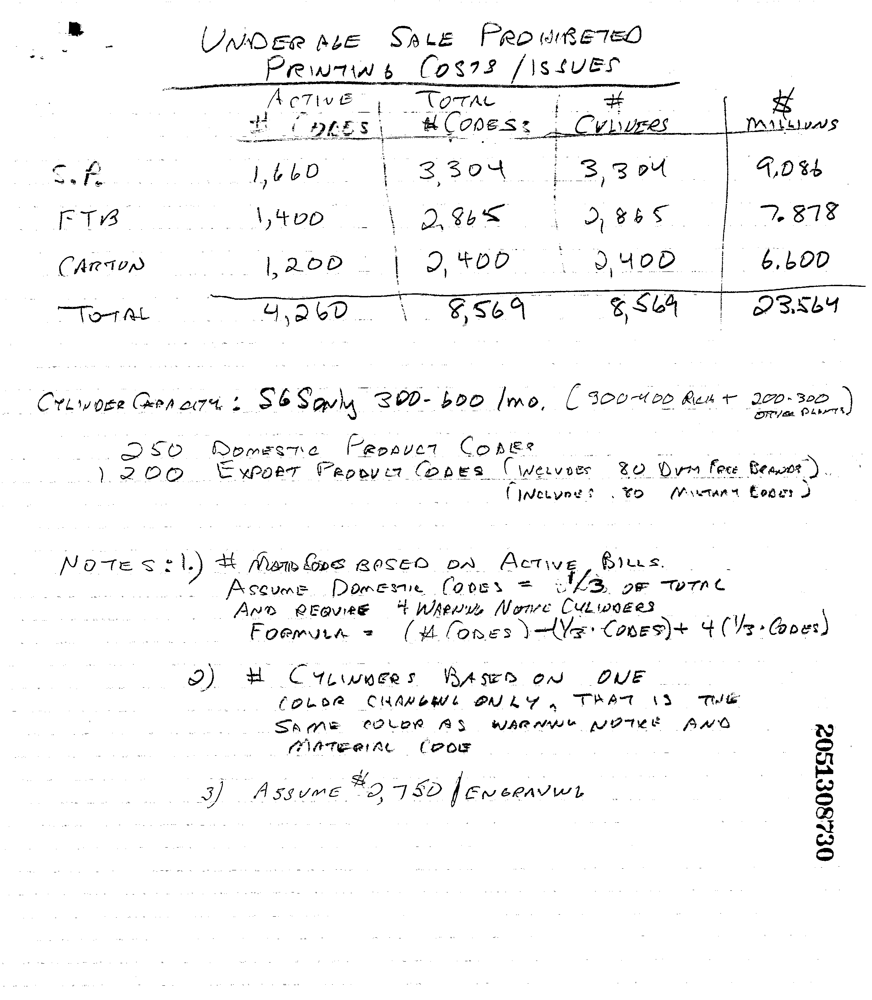 UNDERAGE SALE PROHIBETED
PRINTING COSTS / ISSUES
ACTIVE # CODES TOTAL # CODES: # CYLINDERS $ MILLIONS
S.P. 1,660 3,304 3,304 9.086
FTB 1,400 2,865 2,865 7.878
CARTON 1,200 2,400 2,400 6.600
TOTAL 4,260 8,569 8,569 23.564
CYLINDER CAPACITY: 300-600 /mo. (300-400 RICH + 200-300 OTHER PLANTS)
250 DOMESTIC PRODUCT CODES
1200 EXPORT PRODUCT CODES (INCLUDES 80 DUTY FREE BRANDS)
(INCLUDES 80 MILITARY CODES)
NOTES: 1.) # CODES BASED ON ACTIVE BILLS.
ASSUME DOMESTIC CODES = 1/3 OF TOTAL
AND REQUIRE 4 WARNING NOTICE CYLINDERS
FORMULA = (# CODES) - (1/3 · CODES) + 4 (1/3 · CODES)
2) # CYLINDERS BASED ON ONE
COLOR CHANGING ONLY, THAT IS THE
SAME COLOR AS WARNING NOTICE AND
MATERIAL CODE
3) ASSUME $2,750 / ENGRAVING
2051308730